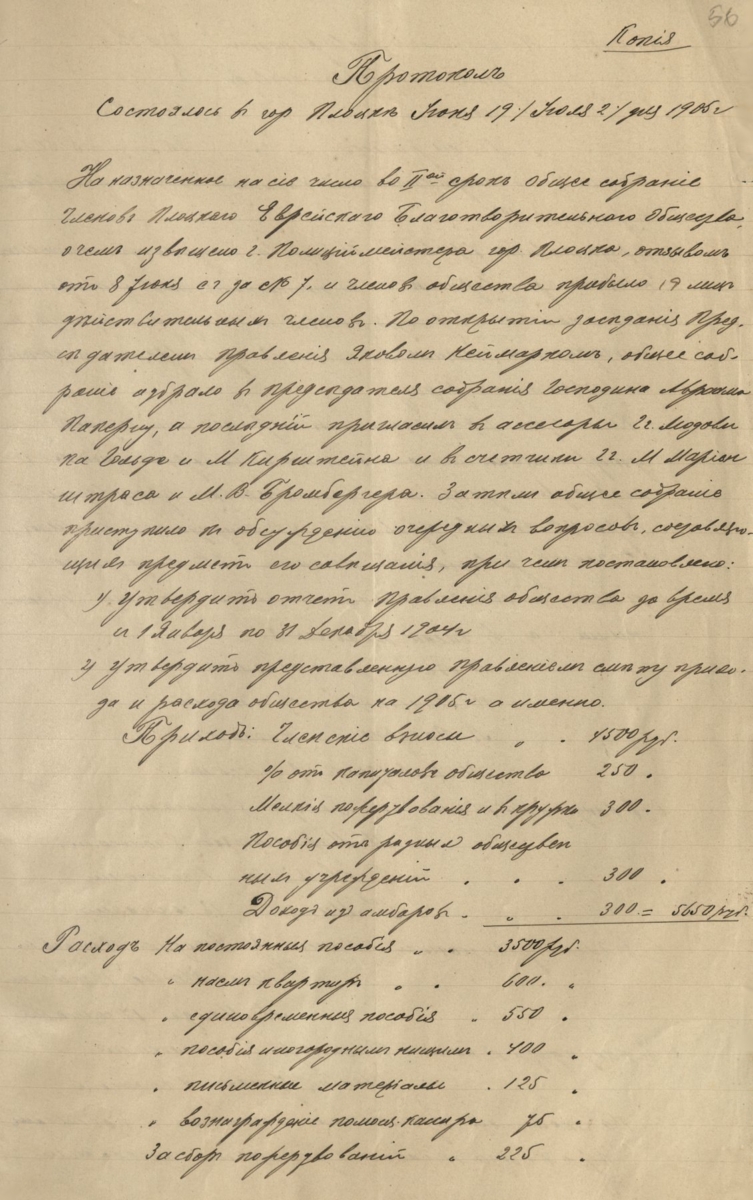 56
Копія
Протоколъ
Состоялось в гор Плоцкѣ Іюня 19/Іюля 2/ дня 1905 г
На назначенное на сіе число во IIой срокъ общее собраніе
Членовъ Плоцкаго Еврейскаго Благотворительнаго Общества,
о чемъ извѣщено г. Полиціймейстера гор Плоцка, отзывомъ
отъ 8 Іюня с г за № 7, и членов общества прибыло 19 лиц
дѣйствительныхъ членовъ. По открытіи засѣданія Пред-
сѣдателемъ Правленія Яковомъ Неймаркомъ, общее соб-
раніе избрало в предсѣдателя собранія Господина
а послѣдній пригласилъ в ассесоры Гг. Людови
ка Гольде и М Кирштейна и в счетчики Гг. М Мариен
штраса и М. В. Бромбергера. Затѣмъ общее собраніе
приступило къ обсужденію очередныхъ вопросовъ, составляю-
щихъ предметъ его совѣщанія, при чемъ постановлено:
1) Утвердить отчетъ Правленія общества за время
с 1 Января по 31 Декабря 1904 г
2) Утвердить представленную Правленіемъ смѣту прихо-
да и расхода общества на 1905 г а именно.
Приходъ: Членскіе взносы " . 4500 руб.
% отъ капиталовъ общества 250 .
Мелкія пожертвованія и в кружки 300 .
Пособія отъ разныхъ обществен
ныхъ учрежденій . . . 300 .
Доходъ изъ амбаровъ . " . 300. = 5650 руб.
Расходъ На постоянныя пособія " . 3500 руб.
" наемъ квартиръ . . 600. "
" единовременныя пособія . 550 .
" пособія иногороднымъ нищимъ . 400 "
" письменные матеріалы . 125 "
" вознагражденіе помощ. касира 75 .
За сборъ пожертвованій " 225 .